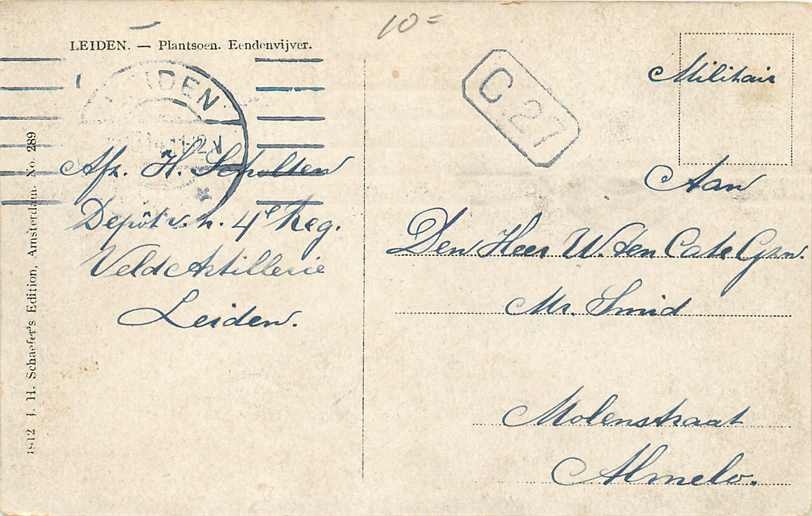 10=
LEIDEN. — Plantsoen. Eendenvijver.
LEIDEN
C.27
Militair
Afz. H. Scholten
Depôt v. h. 4e Reg.
Veld Artillerie
Leiden.
Aan
Den Heer W. ten Cate Gzn.
Mr. Smid
Molenstraat
Almelo.
1912 J. H. Schaefer's Edition, Amsterdam. No. 289